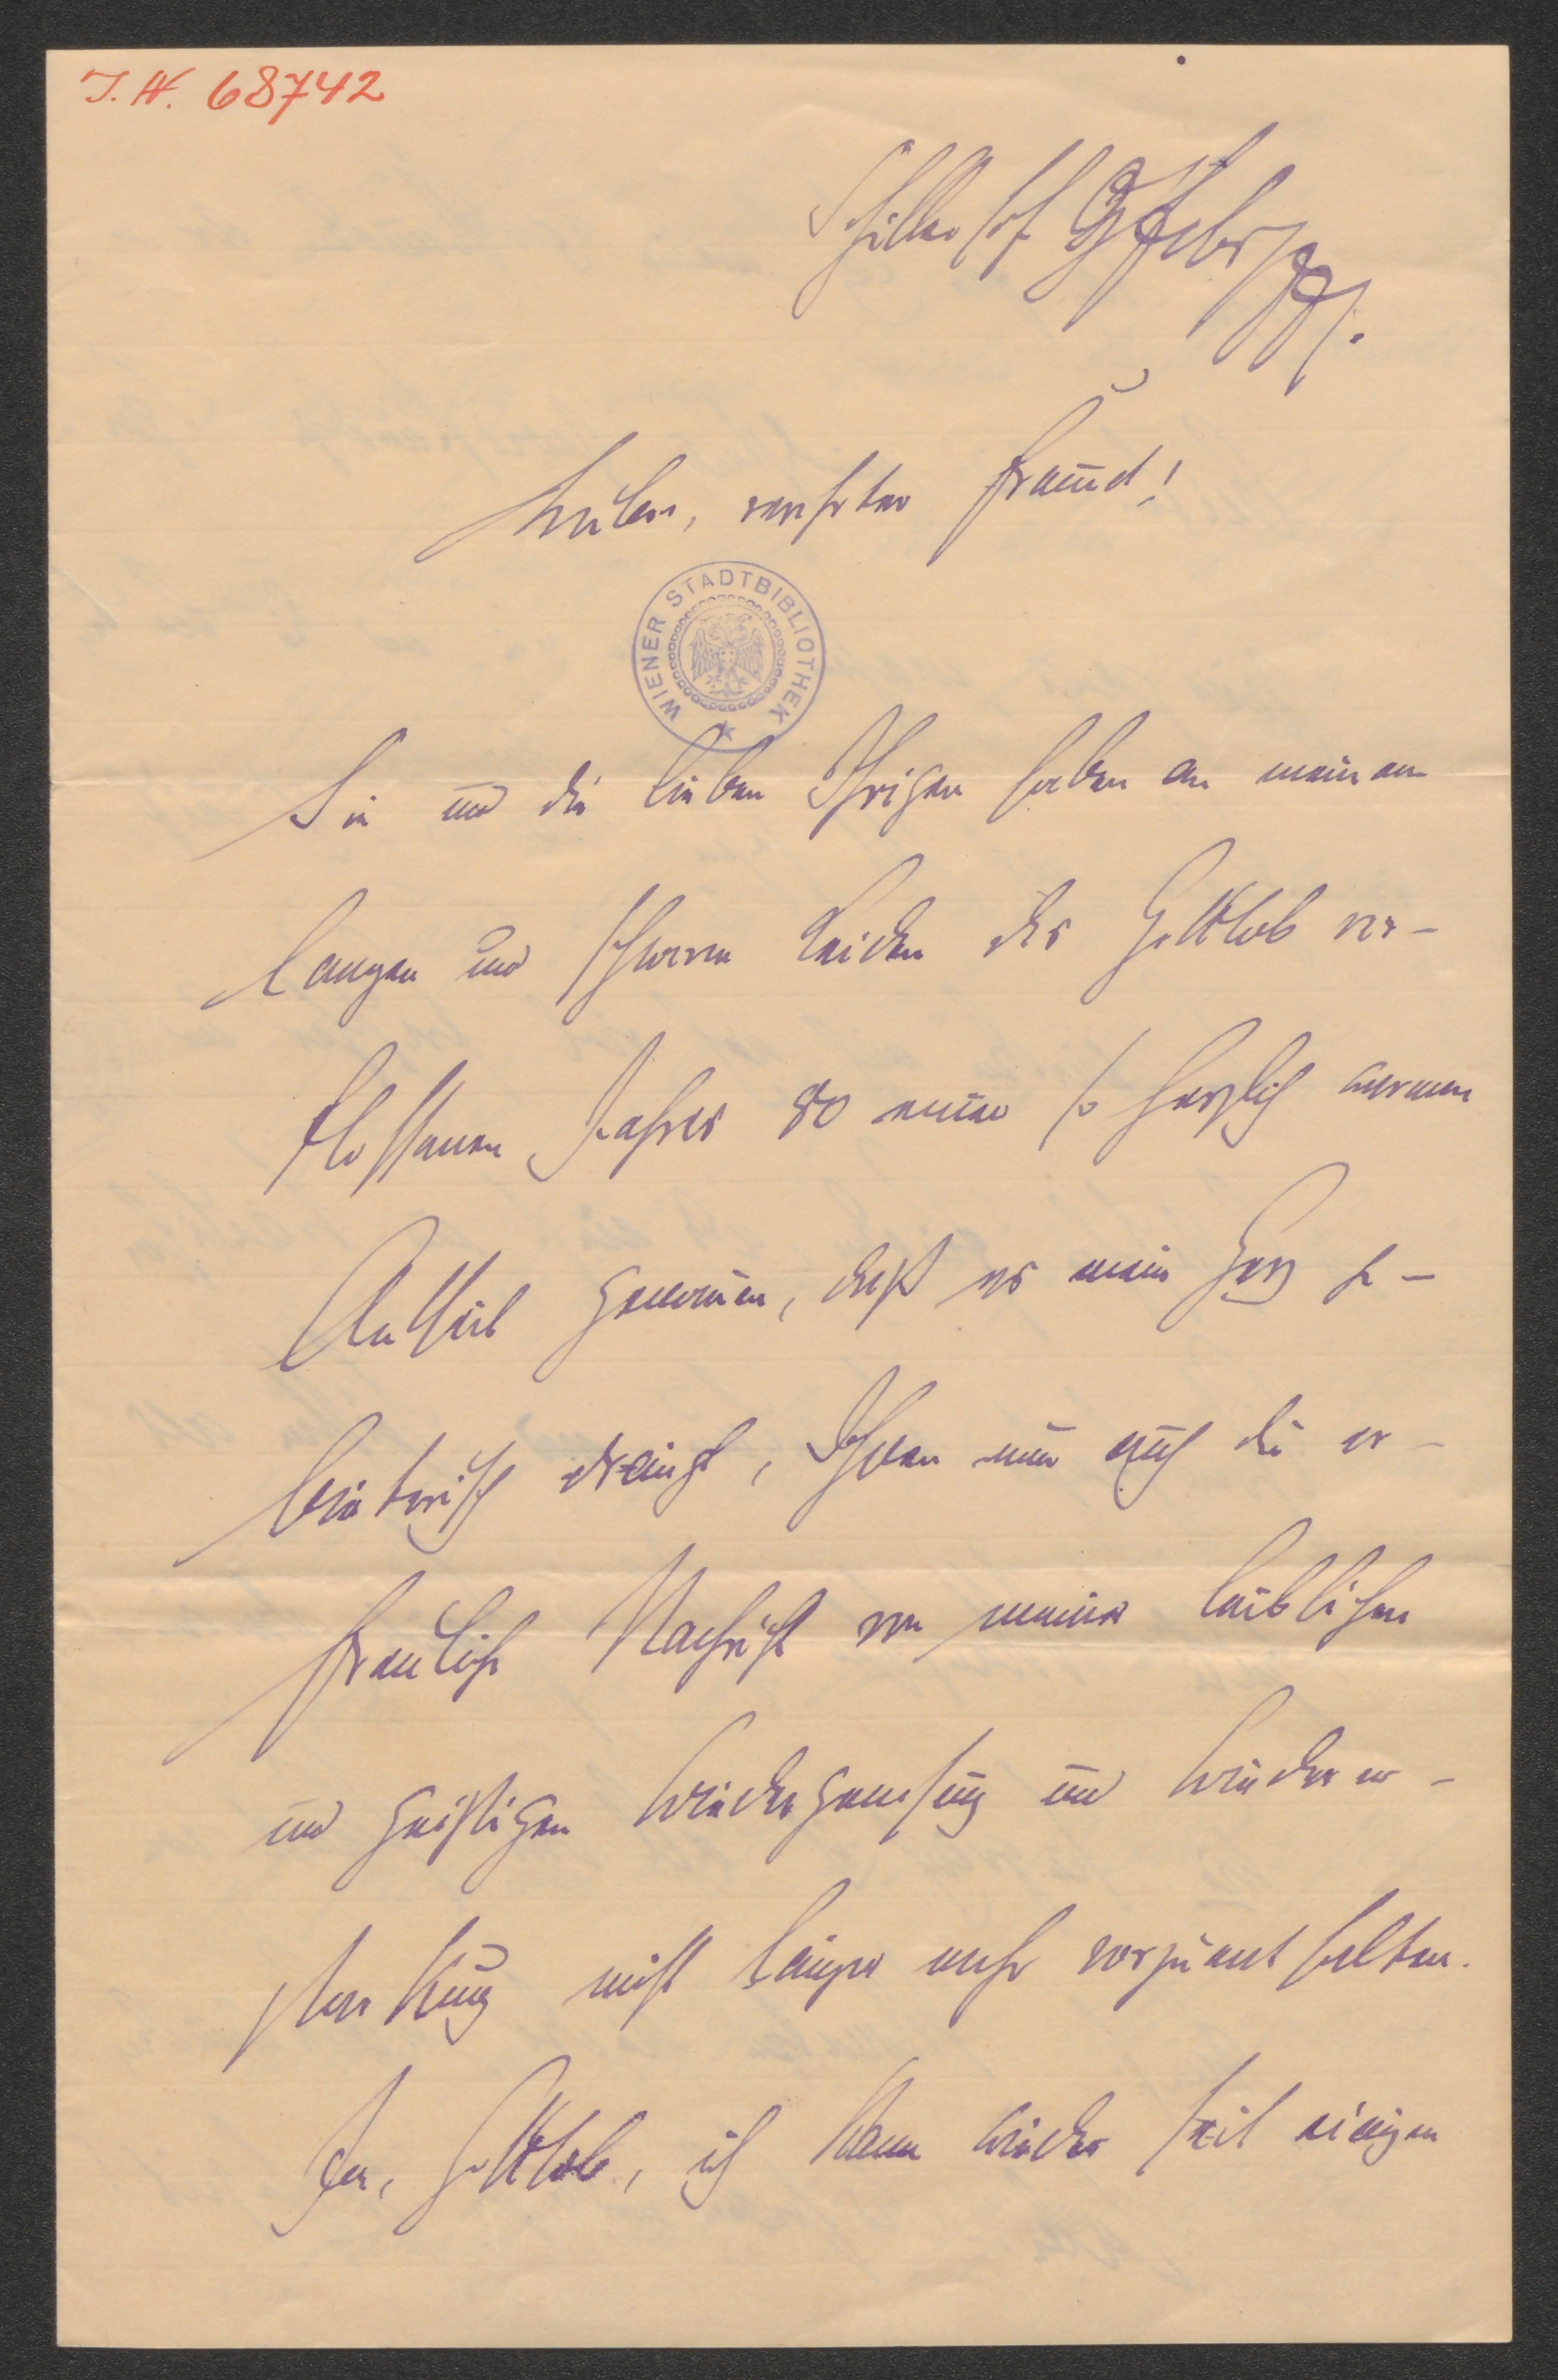 I. N. 68742
Lieber, verehrter Freund!
WIENER STADTBIBLIOTHEK
Sie und die lieben Ihrigen haben an meinem
langen und schweren Leiden des Gottlob ver-
flossenen Jahres 80 immer so herzlich warmen
Antheil genommen, daß es mein Herz ge-
bieterisch drängt, Ihnen nun auch die er-
freuliche Nachricht von meiner leiblichen
und geistigen Wiedergenesung und Wiederer-
starkung nicht länger mehr vorzuenthalten.
Ja, Gottlob, ich kann wieder seit einigen